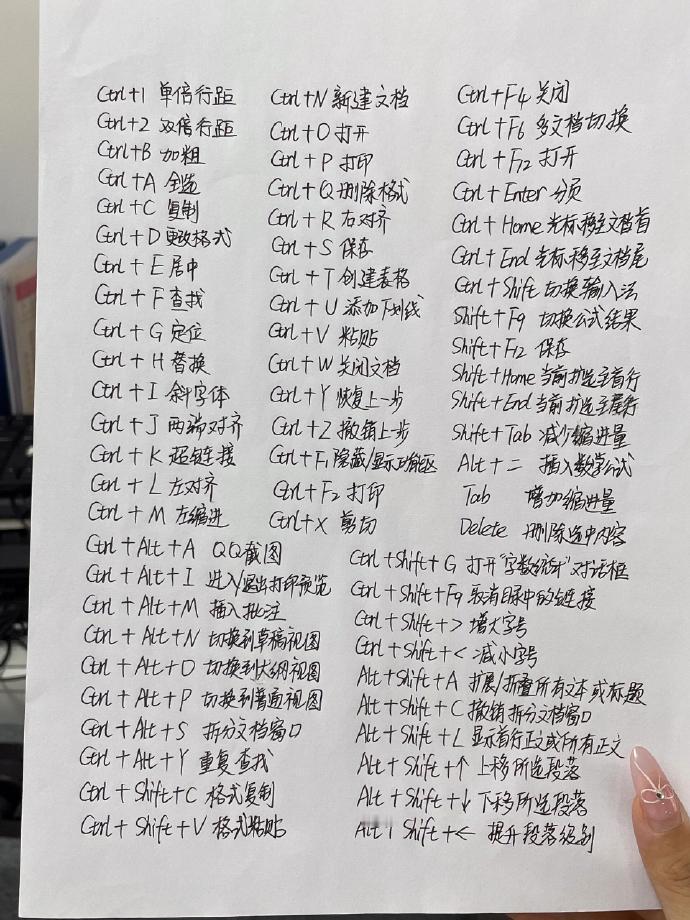 Ctrl+1 单倍行距
Ctrl+2 双倍行距
Ctrl+B 加粗
Ctrl+A 全选
Ctrl+C 复制
Ctrl+D 更改格式
Ctrl+E 居中
Ctrl+F 查找
Ctrl+G 定位
Ctrl+H 替换
Ctrl+I 斜字体
Ctrl+J 两端对齐
Ctrl+K 超链接
Ctrl+L 左对齐
Ctrl+M 左缩进
Ctrl+N 新建文档
Ctrl+O 打开
Ctrl+P 打印
Ctrl+Q 删除格式
Ctrl+R 右对齐
Ctrl+S 保存
Ctrl+T 创建表格
Ctrl+U 添加下划线
Ctrl+V 粘贴
Ctrl+W 关闭文档
Ctrl+Y 恢复上一步
Ctrl+Z 撤销上步
Ctrl+F1 隐藏/显示功能区
Ctrl+F2 打印
Ctrl+X 剪切
Ctrl+F4 关闭
Ctrl+F6 多文档切换
Ctrl+F12 打开
Ctrl+Enter 分页
Ctrl+Home 光标移至文档首
Ctrl+End 光标移至文档尾
Ctrl+Shift 切换输入法
Shift+F9 切换公式结果
Shift+F12 保存
Shift+Home 当前扩选至首行
Shift+End 当前扩选至尾行
Shift+Tab 减少缩进量
Alt+= 插入数学公式
Tab 增加缩进量
Delete 删除选中内容
Ctrl+Alt+A QQ截图
Ctrl+Alt+I 进入/退出打印预览
Ctrl+Alt+M 插入批注
Ctrl+Alt+N 切换到草稿视图
Ctrl+Alt+O 切换到大纲视图
Ctrl+Alt+P 切换到普通视图
Ctrl+Alt+S 拆分文档窗口
Ctrl+Alt+Y 重复查找
Ctrl+Shift+C 格式复制
Ctrl+Shift+V 格式粘贴
Ctrl+Shift+G 打开"字数统计"对话框
Ctrl+Shift+F9 取消目录中的链接
Ctrl+Shift+> 增大字号
Ctrl+Shift+< 减小字号
Alt+Shift+A 扩展/折叠所有文本或标题
Alt+Shift+C 撤销拆分文档窗口
Alt+Shift+L 显示首行正文或所有正文
Alt+Shift+↑ 上移所选段落
Alt+Shift+↓ 下移所选段落
Alt+Shift+← 提升段落级别